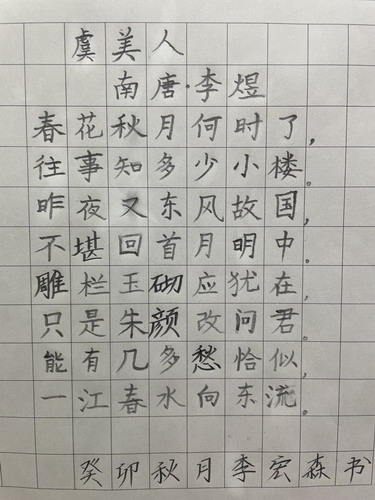 虞美人
南唐·李煜
春花秋月何时了，
往事知多少小楼。
昨夜又东风故国，
不堪回首月明中。
雕栏玉砌应犹在，
只是朱颜改问君。
能有几多愁恰似，
一江春水向东流。
癸卯秋月李宏森书